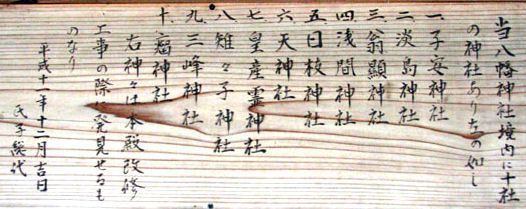 当八幡神社境内に十社
の神社あり左の如し
一.子安神社
二.淡島神社
三.翁顯神社
四.浅間神社
五.日枝神社
六.天神社
七.皇産霊神社
八.雉々子神社
九.三峰神社
十.瘡神社
右神々は本殿改修
工事の際発見せるも
のなり
平成十一年十二月吉日
氏子総代